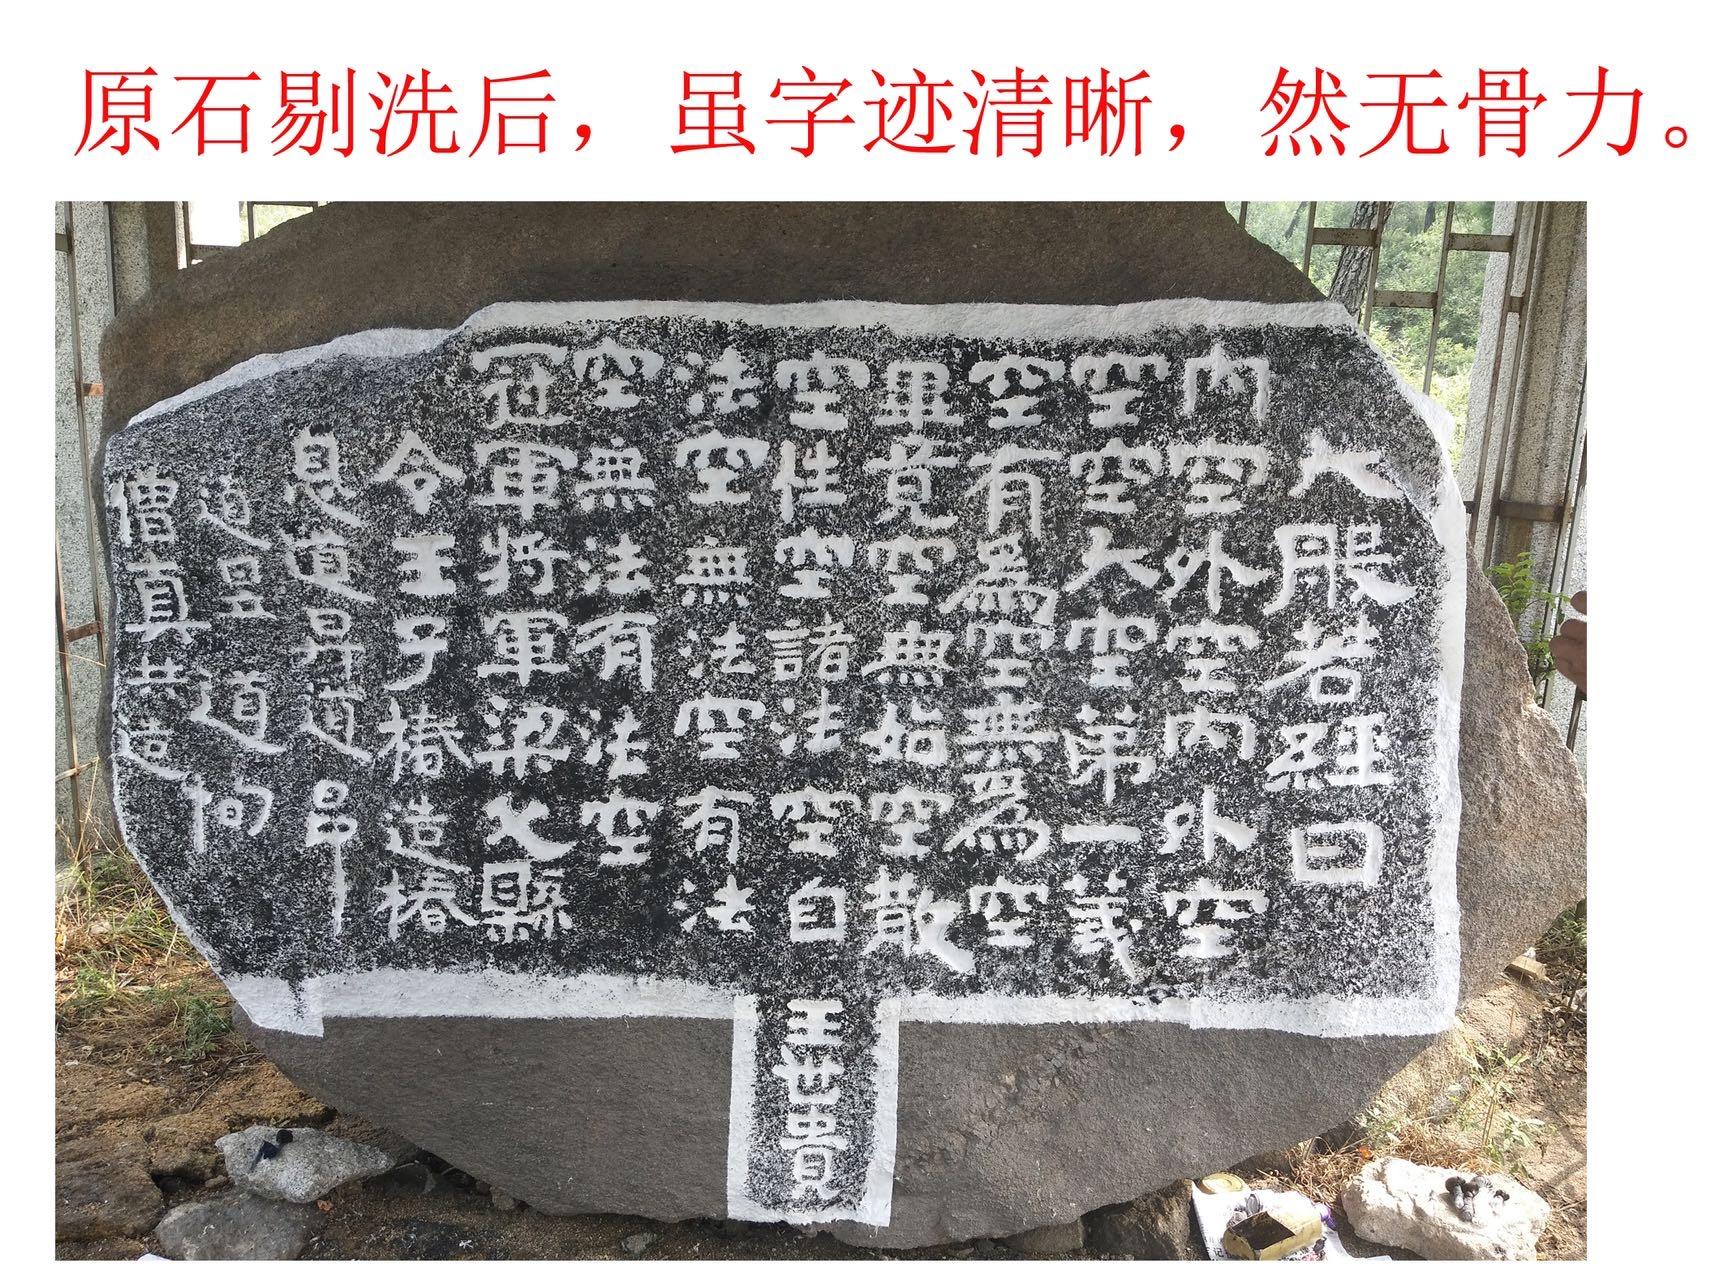 原石剔洗后，虽字迹清晰，然无骨力。
大般若經曰
內空外空內外空
空空大空第一義
空有為空無為空
畢竟空無始空散
空性空諸法空自
法空無法空有法
空無法有法空
冠軍將軍梁父縣
令王子椿造椿
息道昇道昂
道昱道恂
僧真共造
王世貴